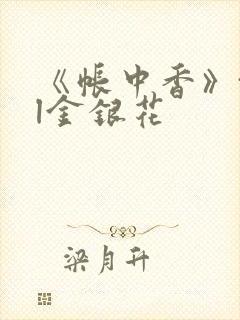 《帐中香》
|金银花
梁月升